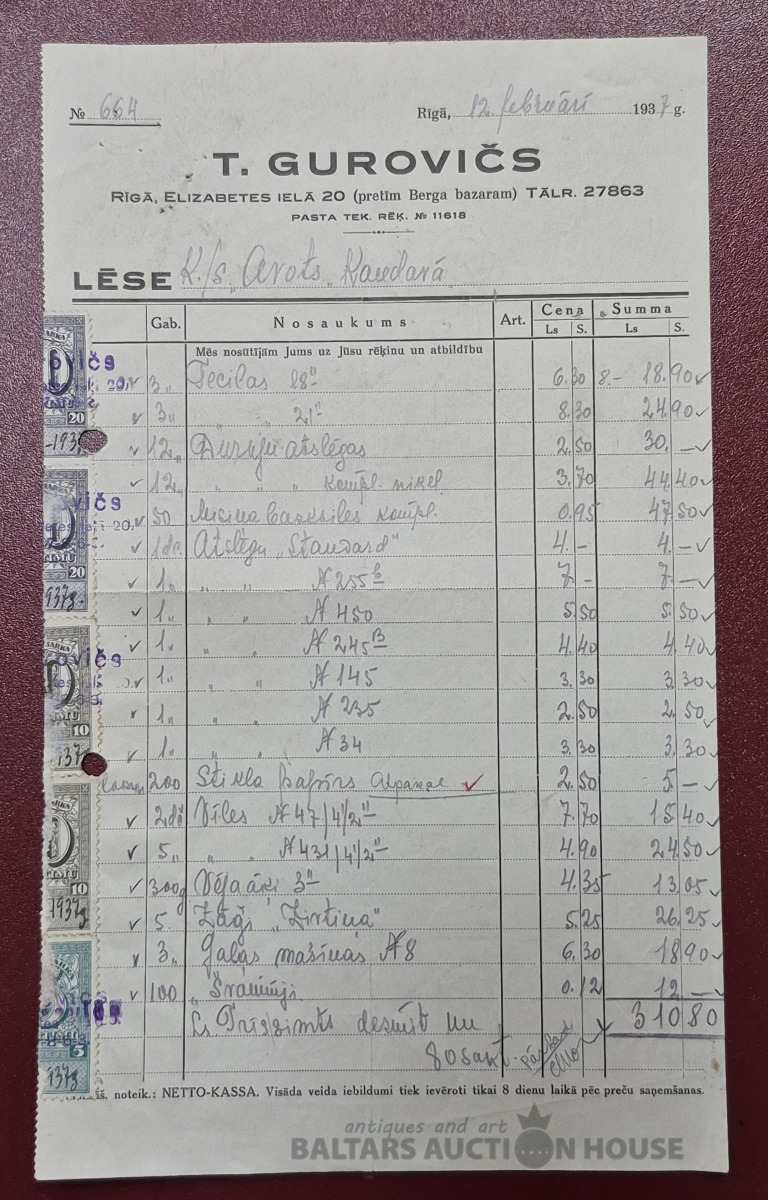 № 664 Rīgā, 12. februārī 1937 g.
T. GUROVIČS
RĪGĀ, ELIZABETES IELĀ 20 (pretīm Berga bazaram) TĀLR. 27863
PASTA TEK. RĒĶ. № 11618
LĒSE K./s. „Avots„ Kandavā
Gab. Nosaukums Art. Cena Summa
Ls S. Ls S.
Mēs nosūtījām Jums uz Jūsu rēķinu un atbildību
3„ Tecilas 18" 6.30 18.90
3„ „ „ 21" 8.30 24.90
12„ Durvju atslēgas 2.50 30.—
12„ „ „ kompl. nikel 3.70 44.40
50 kompl. 0.95 47.50
Atslēgu „Standard" 4.— 4.—
1„ „ „ N 255 b 7.— 7.—
1„ „ „ N 450 5.50 5.50
1„ „ „ N 245 B 4.40 4.40
1„ „ „ N 145 3.30 3.30
1„ „ „ N 235 2.50 2.50
1„ „ „ N 34 3.30 3.30
200 Stikla 2.50 5.—
2 Vīles N 47/4½" 7.70 15.40
5„ „ „ N 431/4½" 4.90 24.50
300 3" 4.35 13.05
5. Zāģi 5.25 26.25
3„ Gaļas mašīnas N 8 6.30 18.90
100 0.12 12.—
Ls. Trīssimts desmit un 310.80
80 sant.
noteik.: NETTO-KASSA. Visāda veida iebildumi tiek ievēroti tikai 8 dienu laikā pēc preču saņemšanas.
20
20
10
10
5
antiques and art
BALTARS AUCTION HOUSE